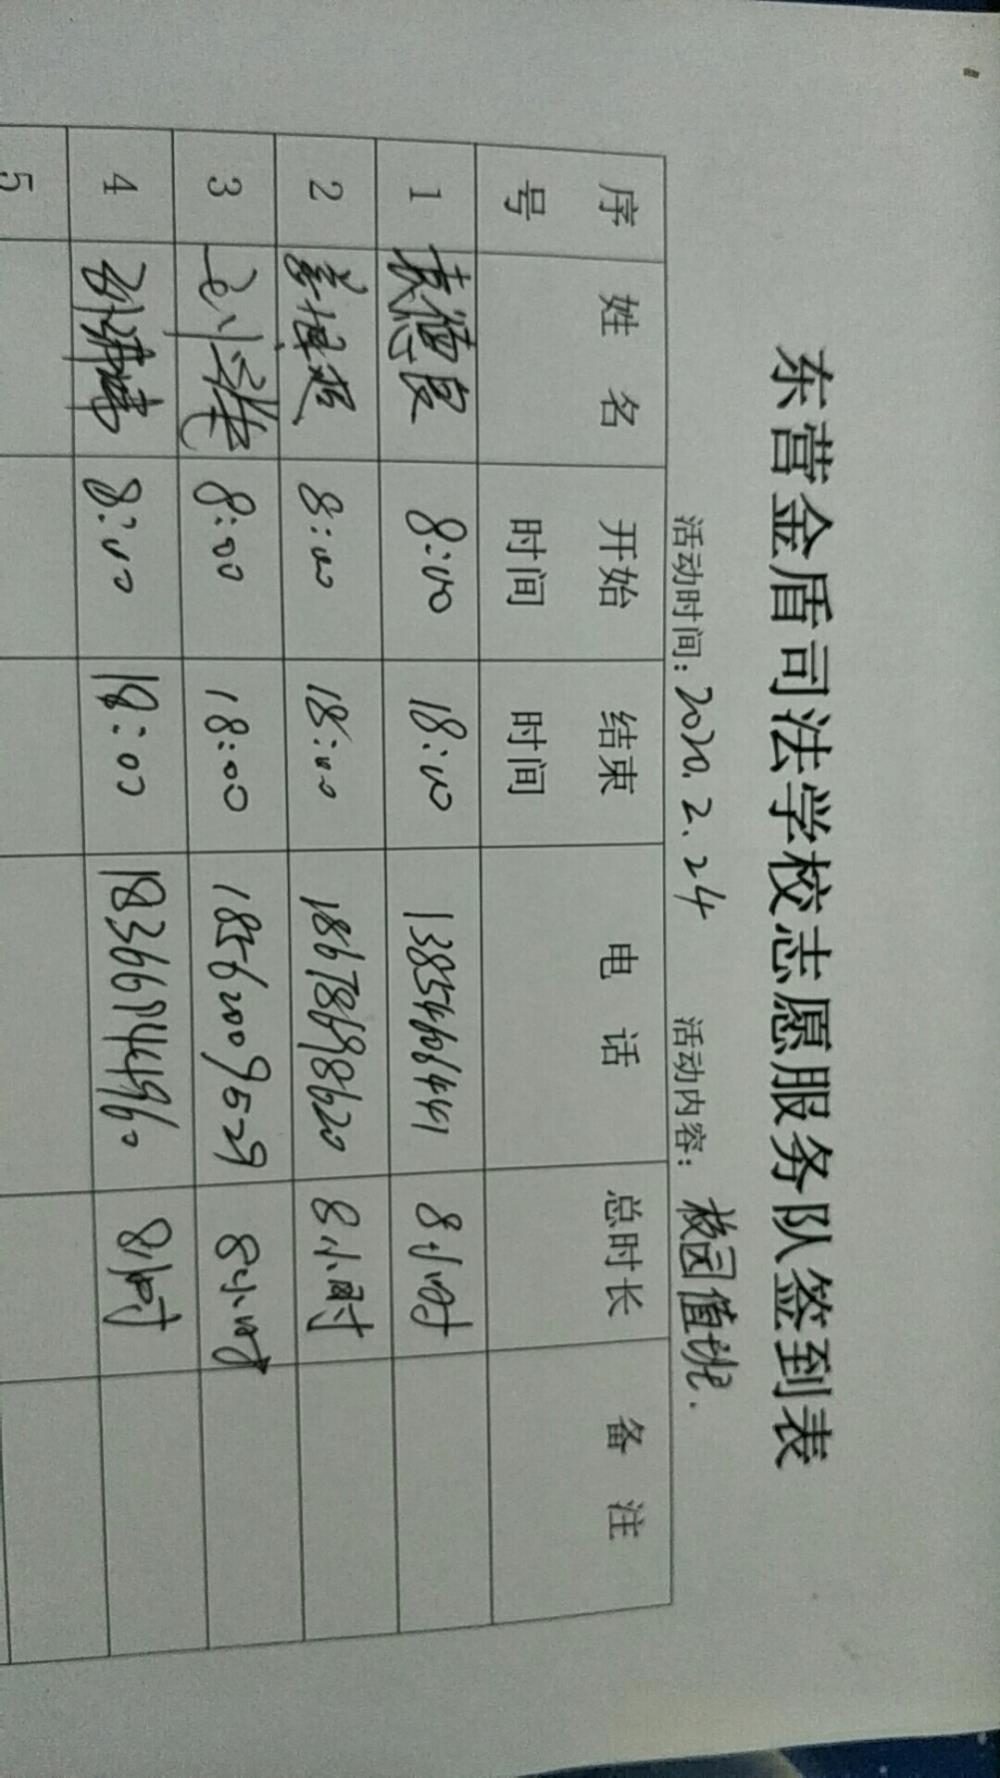 东营金盾司法学校志愿服务队签到表
活动时间：2020.2.24 活动内容：校园值班.
序号 姓名 开始时间 结束时间 电话 总时长 备注
1 袁德良 8:00 18:00 13854606441 8小时
2 8:00 18:00 18678698620 8小时
3 8:00 18:00 18562009529 8小时
4 8:00 18:00 8小时
5